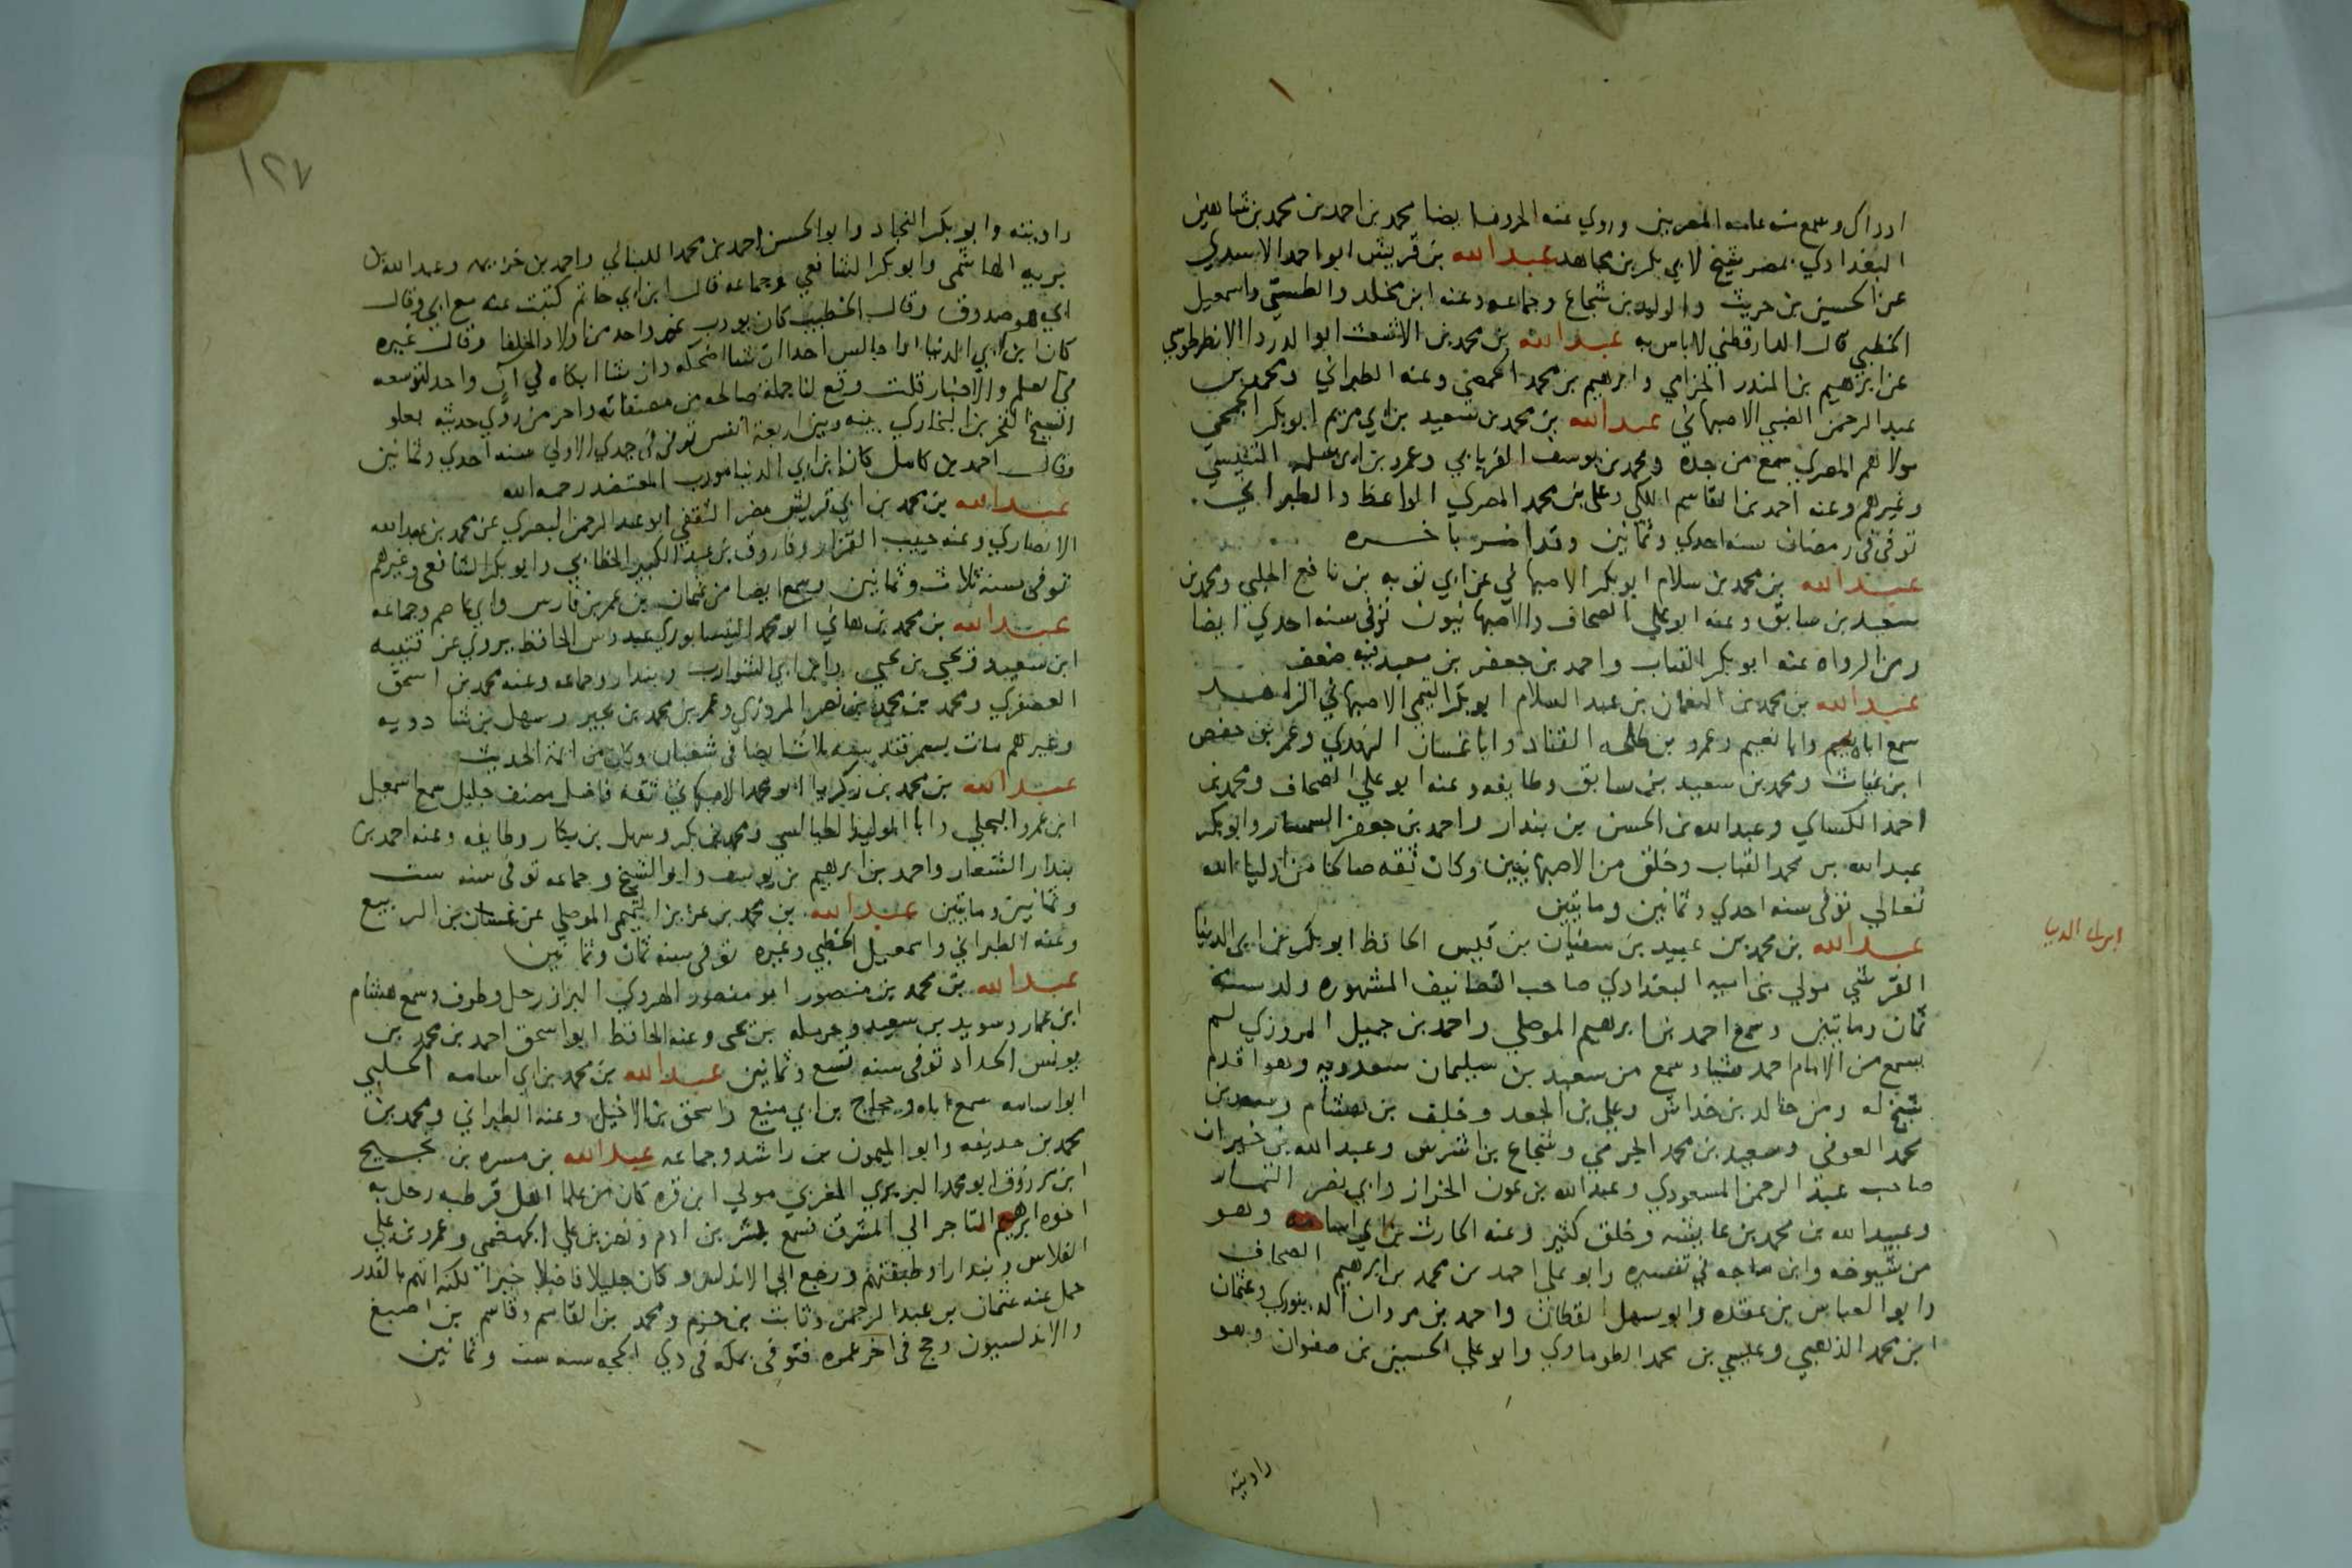 ادراك وسمع منه عامه المصريين وروي عنه الحروف ايضا محمد بن احمد بن محمد بن شاهين
البغدادي بمصر شيخ لابي بكر بن مجاهد عبد الله بن قريش ابو احمد الاسدي
عن الحسين بن حريث والوليد بن شجاع وجماعه وعنه ابن مخلد والطستي واسمعيل
الخطبي قال الدارقطني لا باس به عبد الله بن محمد بن الاشعث ابو الدردا الانطرطوسي
عن ابرهيم بن المنذر الحزامي وابرهيم بن محمد الحمصي وعنه الطبراني ومحمد بن
عبد الرحمن الضبي الاصبهاني عبد الله بن محمد بن سعيد بن ابي مريم ابو بكر الجمحي
مولاهم المصري سمع من جده ومحمد بن يوسف الفريابي وعمرو بن ابي سلمه التنيسي
وغيرهم وعنه احمد بن القاسم اللكي وعلي بن محمد المصري الواعظ والطبراني
توفي في رمضان سنه احدي وثمانين وقد اضر باخره
عبد الله بن محمد بن سلام ابو بكر الاصبهاني عن ابي توبه بن نافع الحلبي ومحمد بن
سعيد بن سابق وعنه ابو علي الصحاف والاصبهانيون توفي سنه احدي ايضا
ومن الرواه عنه ابو بكر القباب واحمد بن جعفر بن معبد فيه ضعف
عبد الله بن محمد بن النعمان بن عبد السلام ابو بكر التيمي الاصبهاني الزاهد
سمع اباه وابا نعيم وعمرو بن طلحه القناد وابا غسان النهدي وعمر بن حفص
ابن غياث ومحمد بن سعيد بن سابق وطايفه وعنه ابو علي الصحاف ومحمد بن
احمد الكساي وعبد الله بن الحسن بن بندار واحمد بن جعفر السمسار وابو بكر
عبد الله بن محمد القباب وخلق من الاصبهانيين وكان ثقه صالحا من اوليا الله
تعالي توفي سنه احدي وثمانين ومايتين
عبد الله بن محمد بن عبيد بن سفيان بن قيس الحافظ ابو بكر بن ابي الدنيا
ابن ابي الدنيا
القرشي مولي بني اميه البغدادي صاحب التصانيف المشهوره ولد سنة
ثمان ومايتين وسمع احمد بن ابرهيم الموصلي واحمد بن جميل المروزي لم
يسمع من الامام احمد شيا وسمع من سعيد بن سليمان سعدويه وهو اقدم
شيخ له ومن خالد بن خداش وعلي بن الجعد وخلف بن هشام وسعد بن
محمد العوفي وسعيد بن محمد الجرمي وشجاع بن اشرس وعبد الله بن خيران
صاحب عبد الرحمن المسعودي وعبد الله بن عون الخراز وابي نصر التمار
وعبيد الله بن محمد بن عايشه وخلق كثير وعنه الحارث بن ابي اسامه وهو
من شيوخه وابن ماجه في تفسيره وابو علي احمد بن محمد بن ابرهيم الصحاف
وابو العباس بن عقده وابو سهل القطان واحمد بن مروان الدينوري وعثمان
ابن محمد الذهبي وعيسي بن محمد الطوماري وابو علي الحسين بن صفوان وهو
راويته
١٢٧
راويته وابو بكر النجاد وابو الحسن احمد بن محمد اللنباني واحمد بن خزيمه وعبد الله بن
بريه الهاشمي وابو بكر الشافعي وجماعه قال ابن ابي حاتم كتبت عنه مع ابي وقال
ابي هو صدوق وقال الخطيب كان يودب غير واحد من اولاد الخلفا وقال غيره
كان ابن ابي الدنيا اذا جالس احدا ان شا اضحكه وان شا ابكاه في ان واحد لتوسعه
في العلم والاخبار قلت وقع لنا جمله صالحه من مصنفاته واخر من روي حديثه بعلو
الشيخ الفخر بن البخاري بينه وبينه اربعة انفس توفي في جمدي الاولي سنه احدي وثمانين
وقال احمد بن كامل كان ابن ابي الدنيا مودب المعتضد رحمه الله
عبد الله بن محمد بن ابي قريش مضر الثقفي ابو عبد الرحمن البصري عن محمد بن عبد الله
الانصاري وعنه حبيب القزاز وفاروق بن عبد الكبير الخطابي وابو بكر الشافعي وغيرهم
توفي سنه ثلاث وثمانين وسمع ايضا من عثمان بن عمر بن فارس وابي عاصم وجماعه
عبد الله بن محمد بن هاني ابو محمد النيسابوري عبدوس الحافظ يروي عن قتيبه
ابن سعيد ويحيي بن يحيي وابن ابي الشوارب وبندار وجماعه وعنه محمد بن اسحق
العصفري ومحمد بن محمد بن نصر المروزي وعمر بن محمد بن بجير وسهل بن شادويه
وغيرهم مات بسمرقند سنه ثلاث ايضا في شعبان وكان من ائمة الحديث
عبد الله بن محمد بن زكريا ابو محمد الاصبهاني ثقه فاضل مصنف جليل سمع اسمعيل
ابن عمرو البجلي وابا الوليد الطيالسي ومحمد بن بكر وسهل بن بكار وطايفه وعنه احمد بن
بندار الشعار واحمد بن ابرهيم بن يوسف وابو الشيخ وجماعه توفي سنه ست
وثمانين ومايتين عبد الله بن محمد بن عزيز التميمي الموصلي عن غسان بن الربيع
وعنه الطبراني واسمعيل الخطبي وغيره توفي سنه ثمان وثمانين
عبد الله بن محمد بن منصور ابو منصور الهروي البزاز رحل وطوف وسمع هشام
ابن عمار وسويد بن سعيد وحرمله بن يحيي وعنه الحافظ ابو اسحق احمد بن محمد بن
يونس الحداد توفي سنه تسع وثمانين عبد الله بن محمد بن ابي اسامه الحلبي
ابو اسامه سمع اباه وحجاج بن ابي منيع واسحق بن الاخيل وعنه الطبراني ومحمد بن
محمد بن حذيفه وابو الميمون بن راشد وجماعه عبد الله بن مسره بن نجيح
ابن مرزوق ابو محمد البربري المغربي مولي ابن قره كان من علما اهل قرطبه رحل به
اخوه ابرهيم التاجر الي المشرق فسمع بشر بن ادم ونصر بن علي الجهضمي وعمرو بن علي
الفلاس وبندارا وطبقتهم ورجع الي الاندلس وكان جليلا فاضلا خيرا لكنه اتهم بالقدر
حمل عنه عثمان بن عبد الرحمن وثابت بن حزم ومحمد بن القاسم وقاسم بن اصبغ
والاندلسيون وحج في اخر عمره فتوفي بمكه في ذي الحجه سنه ست وثمانين